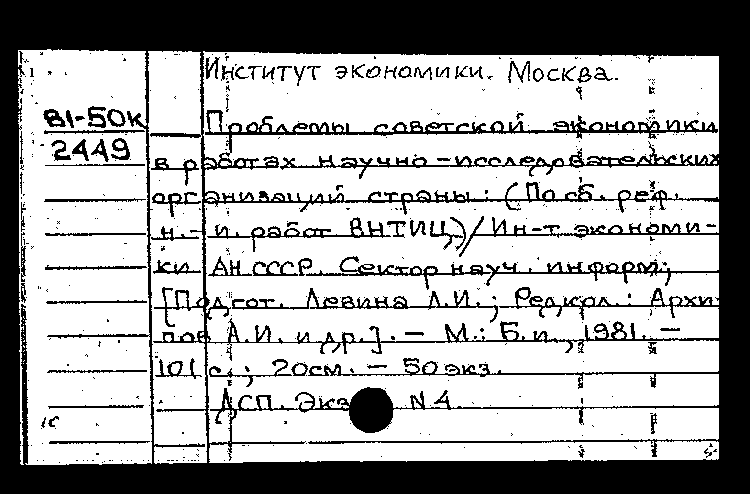 Институт экономики. Москва.
81-50к
2449
Проблемы советской экономики
в работах научно-исследовательских
организаций страны: (По сб. реф.
н.-и. работ ВНТИЦ)/Ин-т экономи-
ки АН СССР. Сектор науч. информ;
[Подгот. Левина Л.И.; Редкол.: Архи-
пов А.И. и др.]. – М.: Б.и., 1981. –
101 с.; 20см. – 50 экз.
ДСП. Экз. N 4.